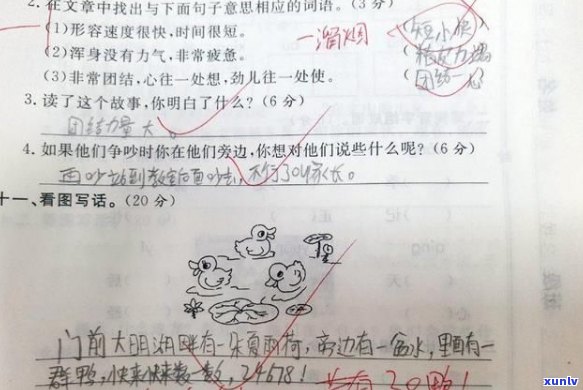 2. 在文章中找出与下面句子意思相应的词语。(3分)
(1)形容速度很快,时间很短。 一溜烟 (短小快)
(2)浑身没有力气,非常疲惫。 (精疲力竭)
(3)非常团结,心往一处想,劲儿往一处使。 (团结一心)
3. 读了这个故事,你明白了什么?(6分)
团结力量大。
4. 如果他们争吵时你在他们旁边,你想对他们说些什么呢?(6分)
再吵站到教室后面吵去,不行了叫家长。
十一、看图写话。(20分)
门前大明湖畔有一朵夏雨荷,旁边有一盆水,里面有一
群鸭,快来快来数一数,24678!
xunlv